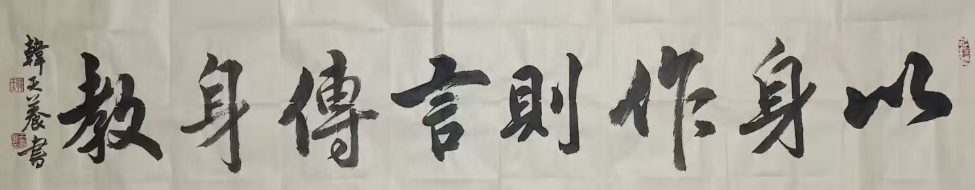 以身作則言傳身教
韓天養書